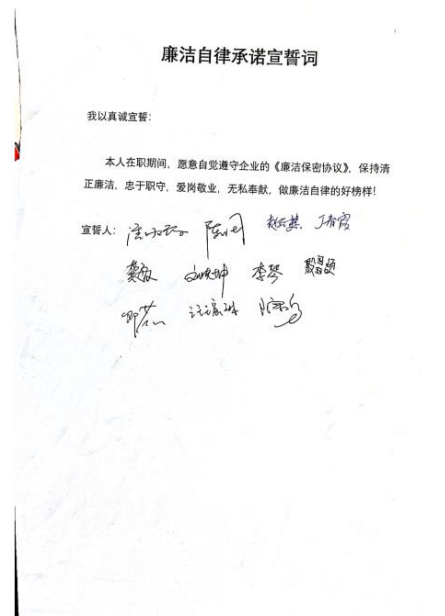 廉洁自律承诺宣誓词
我以真诚宣誓：
本人在职期间，愿意自觉遵守企业的《廉洁保密协议》，保持清
正廉洁，忠于职守，爱岗敬业，无私奉献，做廉洁自律的好榜样！
宣誓人： 丁春霞
李琴